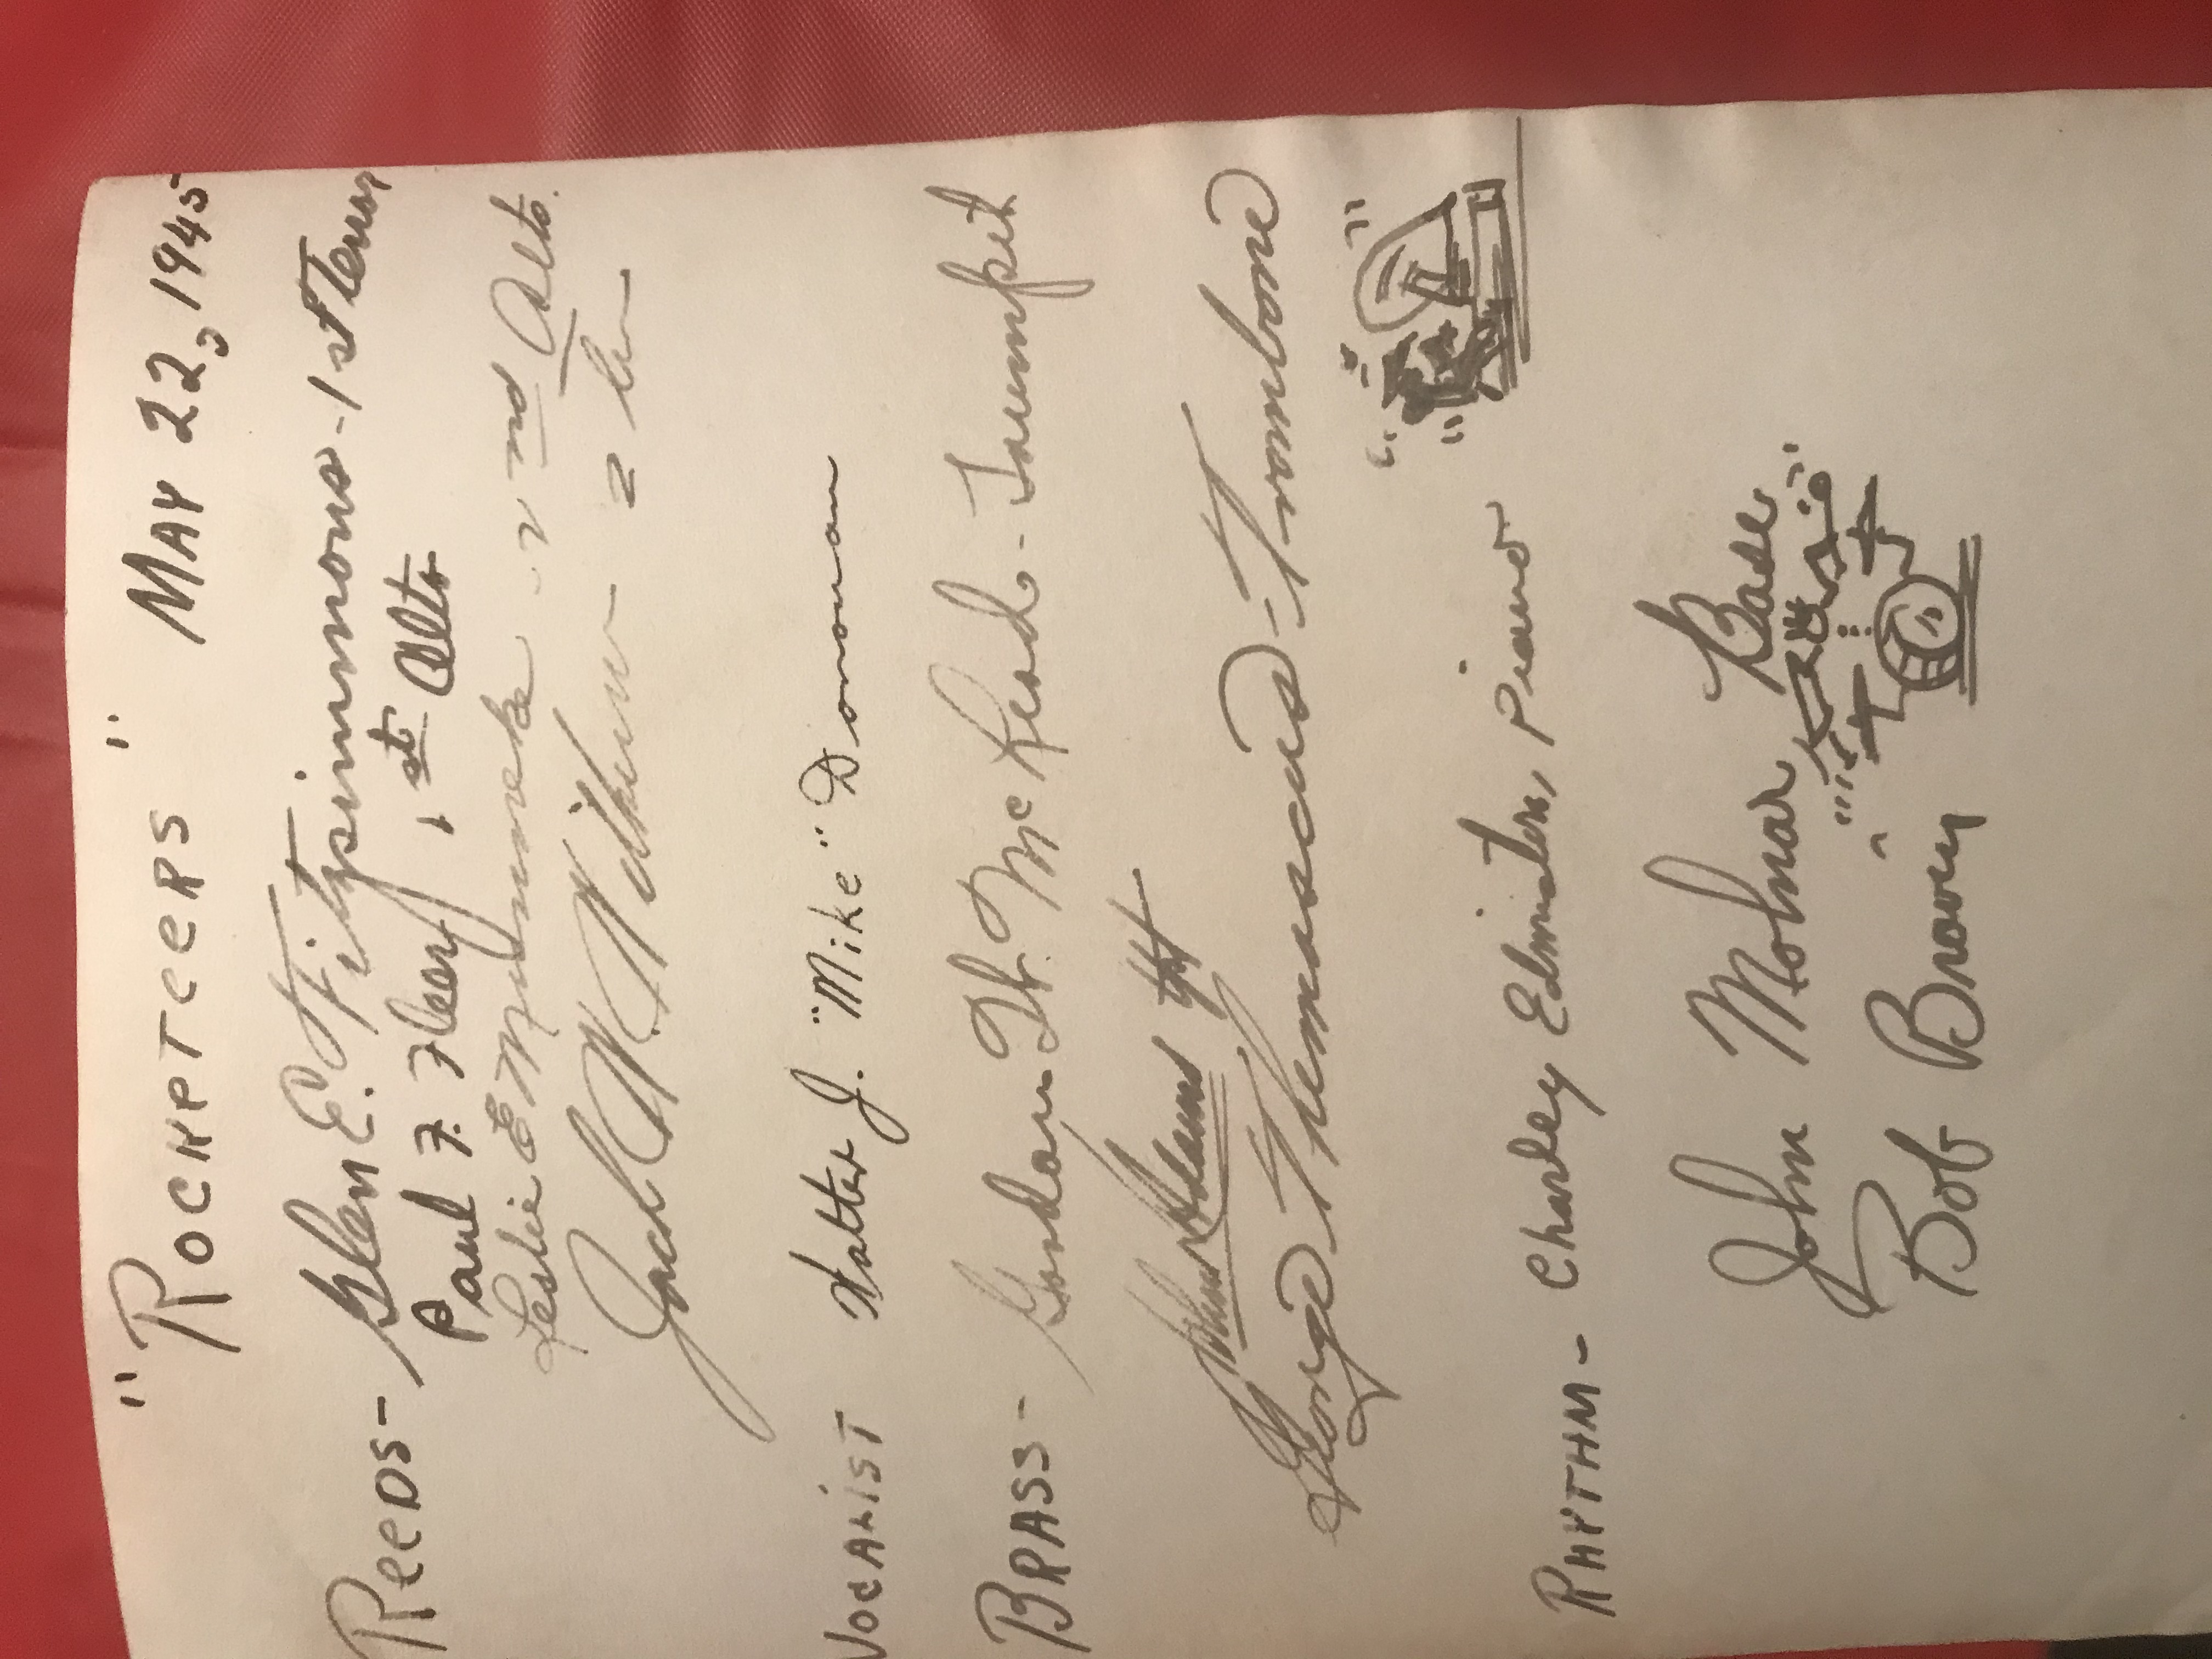 "ROCKETEERS" MAY 22, 1945
REEDS- Glen E. Fitzsimmons - 1st Tenor
Paul F. Fleary, 1st Alto
Leslie E 2nd Alto.
Jack K. 2
VOCALIST Walter J. "Mike" Donovan
BRASS - Gordon H. McKeab - Trumpet
John Adams tpt
George Themascus - Trombone
RHYTHM - Charley Edminston, Piano
John Molnar Base
Bob Brown